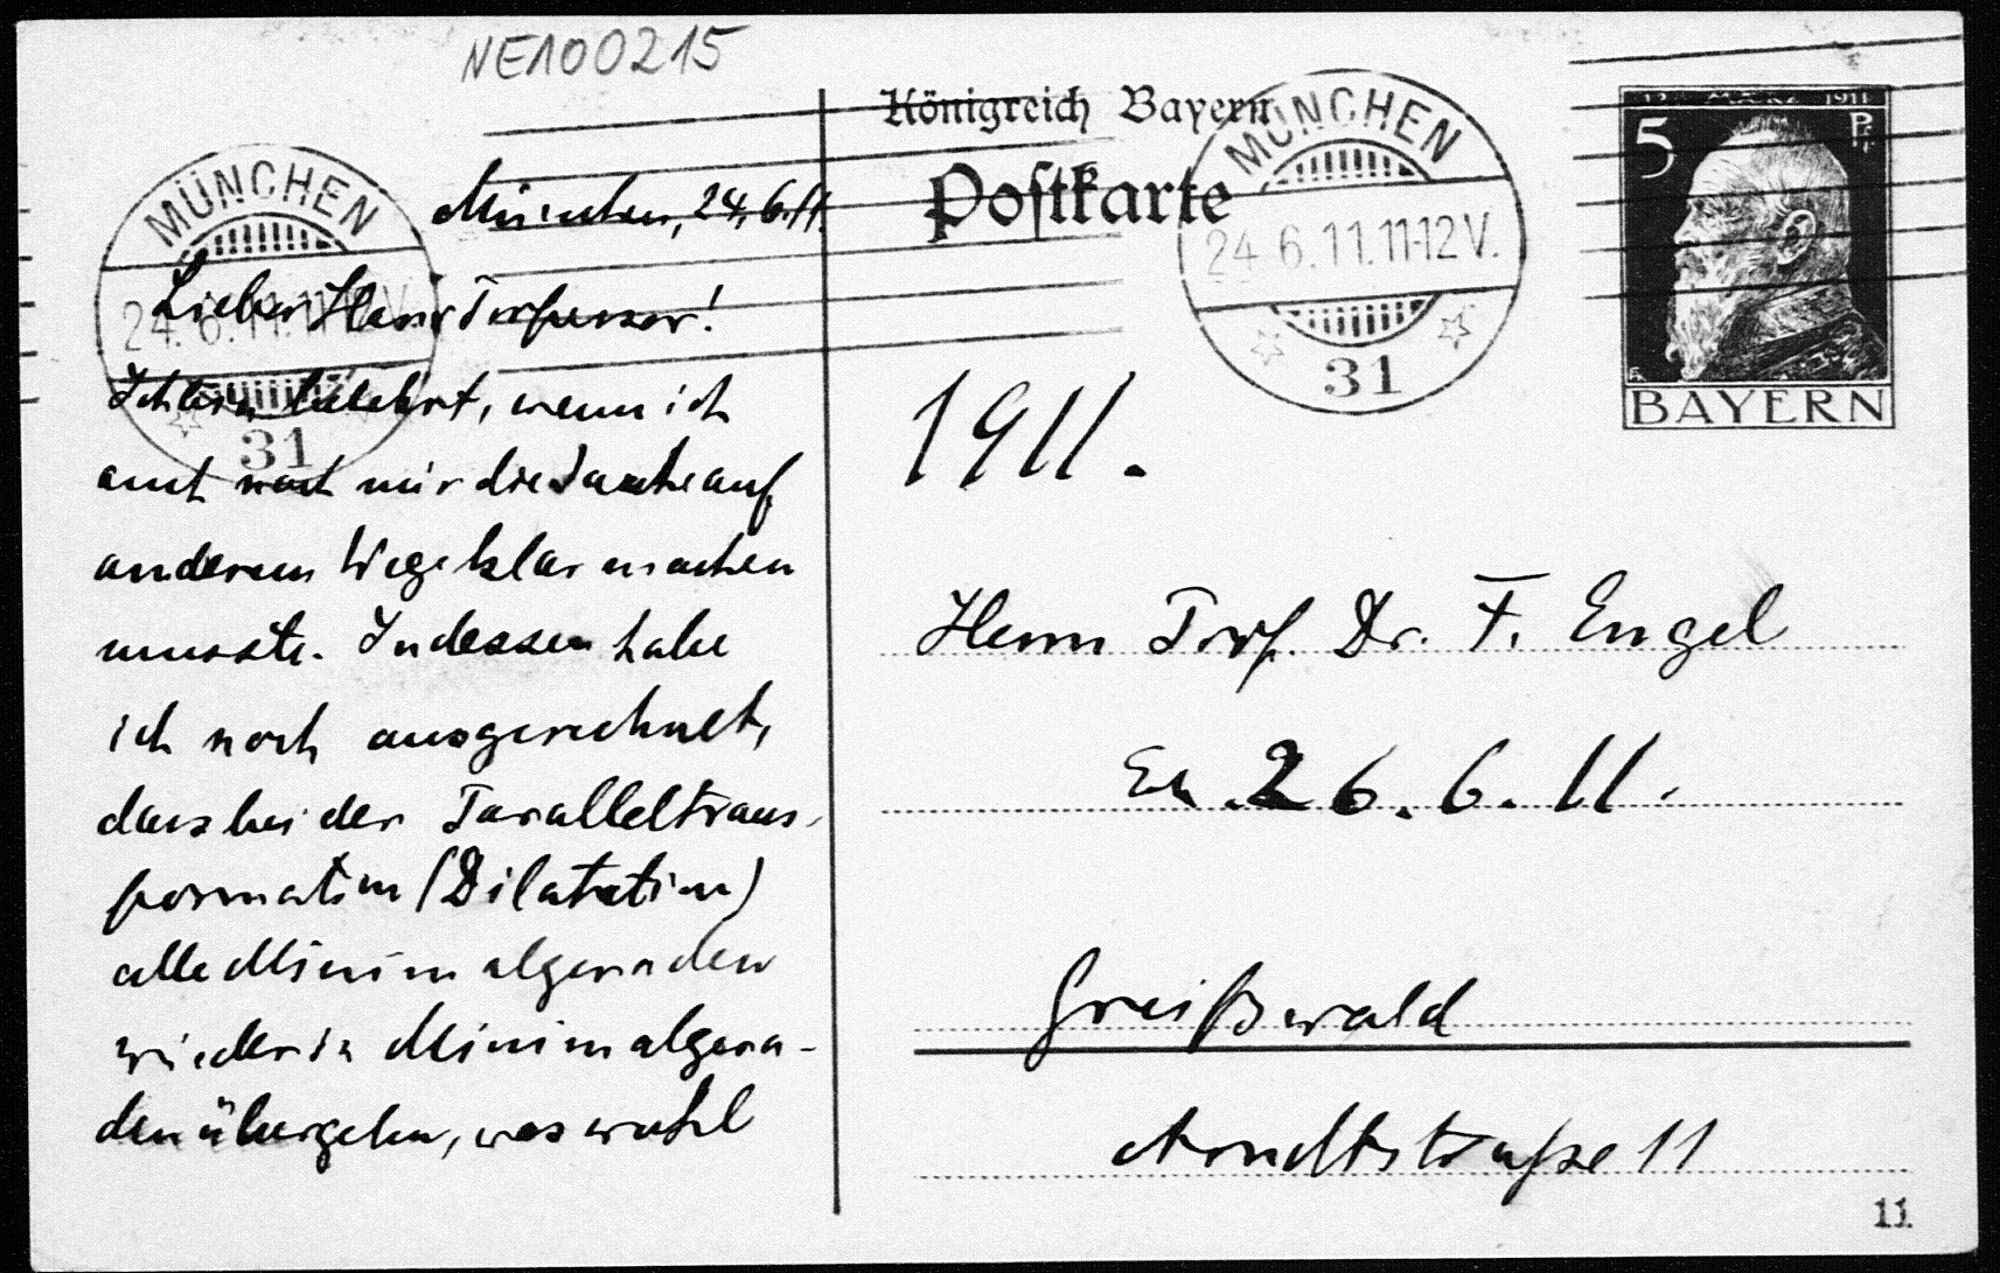 NE100215
München, 24.6.11.
Lieber Herr Professor!
Ich bin belehrt, wenn ich
auch noch mir die Sache auf
anderem Wege klar machen
musste. Indessen habe
ich noch ausgerechnet,
dass bei der Paralleltrans-
formation (Dilatation)
alle Minimalgeraden
wieder in Minimalgera-
den übergehen, was wohl
MÜNCHEN
24.6.11.11-12V.
31
Königreich Bayern
Postkarte
MÜNCHEN
24.6.11.11-12V.
31
12. MÄRZ 1911
5 Pf.
BAYERN
1911.
Herrn Prof. Dr. F. Engel
26.6.11.
Greifswald
Arndtstraße 11
11